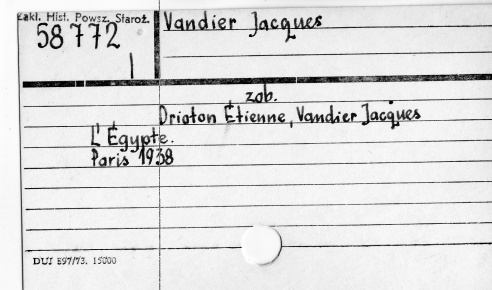 Zakł. Hist. Powsz. Staroż.
58772
Vandier Jacques
zob.
Drioton Étienne, Vandier Jacques
L'Égypte.
Paris 1938
DUJ 597/73. 15000